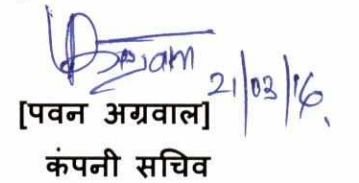 21/03/16
[पवन अग्रवाल]
कंपनी सचिव